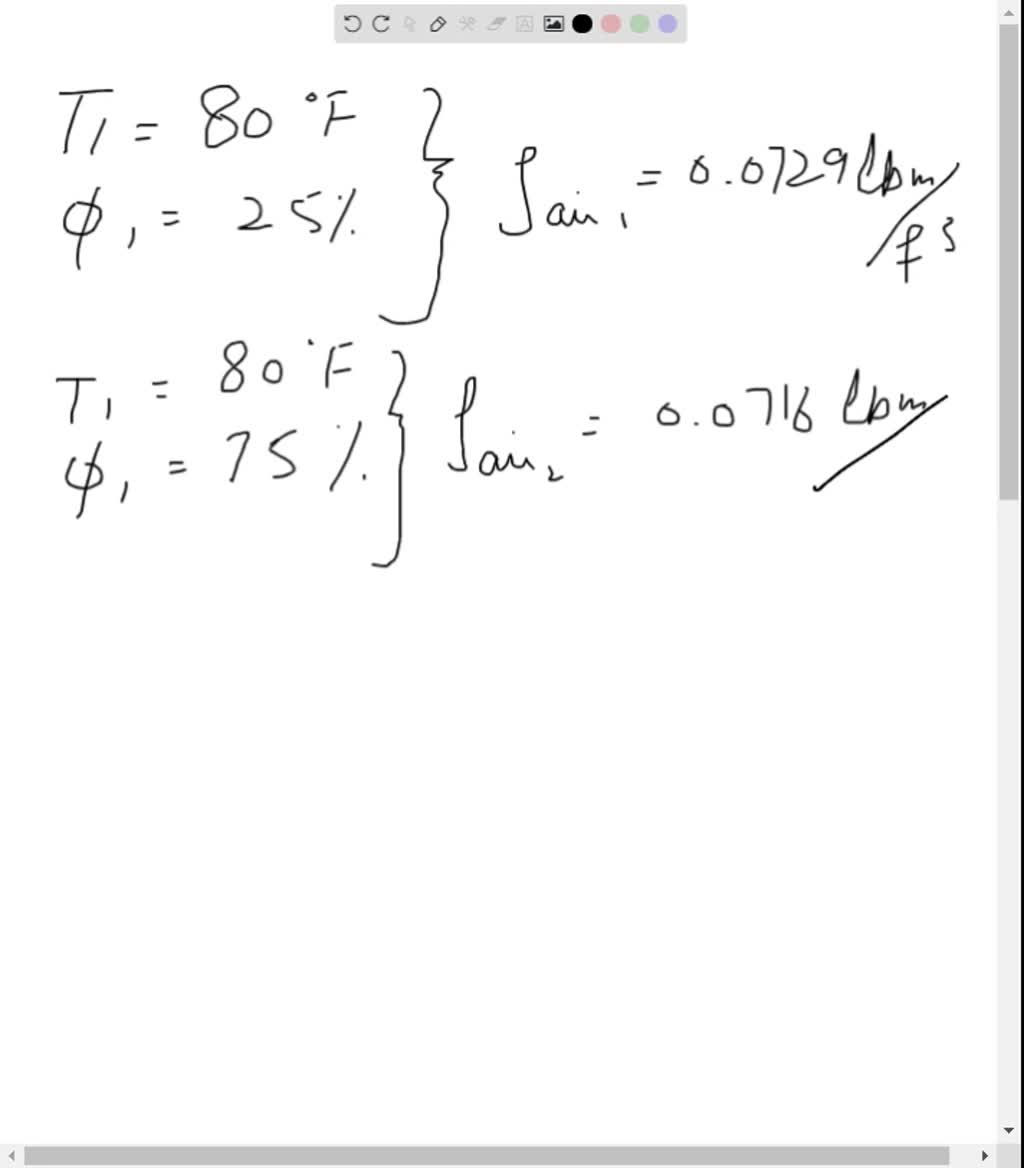 T1 = 80 °F
ϕ1 = 25%
ρair1 = 0.0729 lbm/f3
T1 = 80 °F
ϕ1 = 75%
ρair2 = 0.0716 lbm/